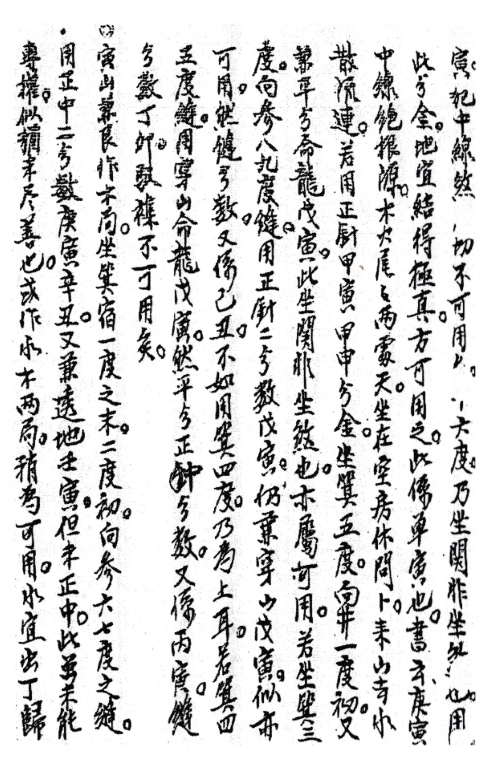 寅犯中線煞 切不可用 六度乃坐関非坐煞也用
此分金地宜結得極真方可用之此係單寅也書云庚寅
中線絶根源木火尾々兩露天坐在室房休問卜來山去水
散流連若用正針甲寅甲申分金坐箕五度向井一度初又
兼平分命龍戊寅此坐関非坐煞也亦屬可用若坐箕三
度向参八九度縫用正針二分数戊寅仍兼穿山戊寅似亦
可用然縫分数又係己丑不如用箕四度乃為上耳若箕四
五度縫用穿山命龍戊寅然平分正針分数又係丙寅縫
分数丁卯駁襍不可用矣
寅山兼艮作木局坐箕宿一度之末二度初向参六七度之縫
用正中二分數庚寅辛丑又兼透地壬寅但未正中此虽未能
專權似猶未尽善也或作水木兩局稍為可用水宜出丁歸